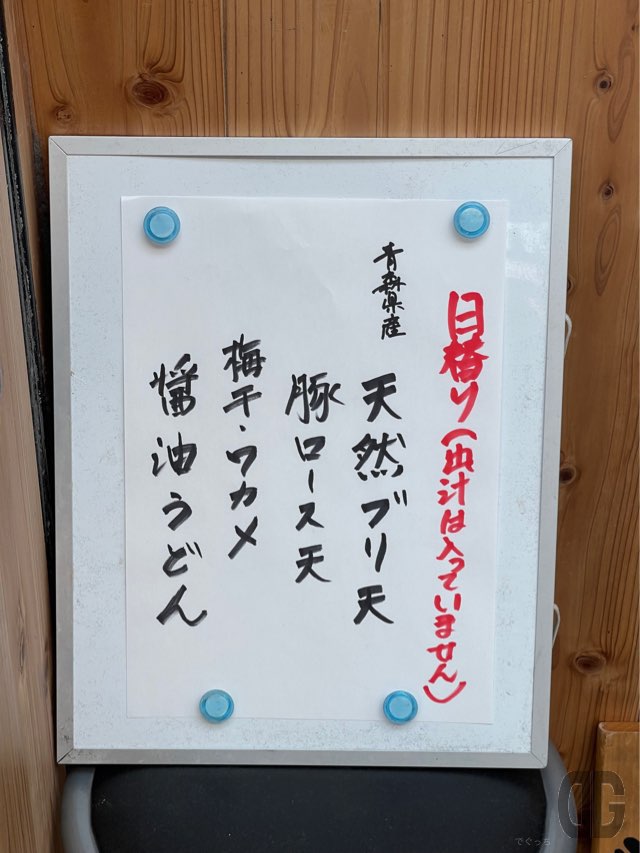 日替り(出汁は入っていません)
青森県産
天然ブリ天
豚ロース天
梅干・ワカメ
醤油うどん
でぐっち